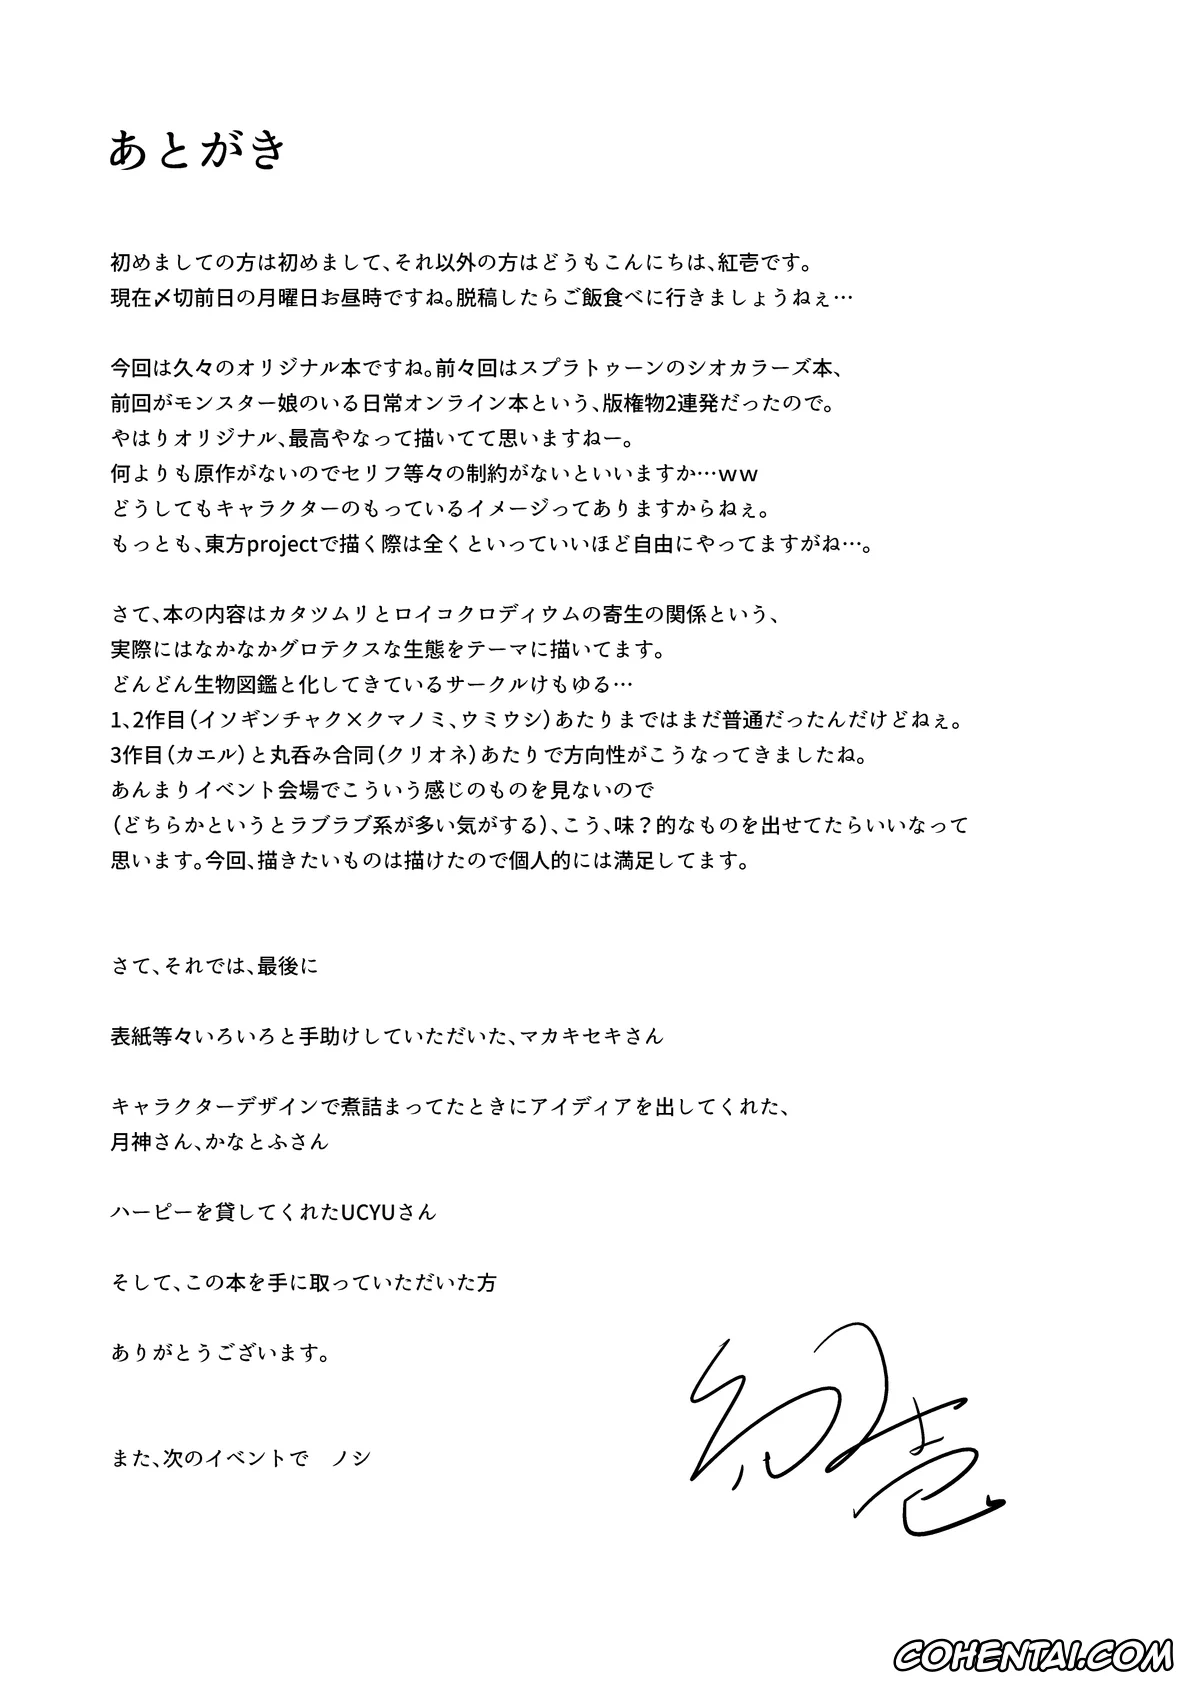 あとがき
初めましての方は初めまして、それ以外の方はどうもこんにちは、紅壱です。
現在〆切前日の月曜日お昼時ですね。脱稿したらご飯食べに行きましょうねぇ…
今回は久々のオリジナル本ですね。前々回はスプラトゥーンのシオカラーズ本、
前回がモンスター娘のいる日常オンライン本という、版権物2連発だったので。
やはりオリジナル、最高やなって描いてて思いますねー。
何よりも原作がないのでセリフ等々の制約がないといいますか…ww
どうしてもキャラクターのもっているイメージってありますからねぇ。
もっとも、東方projectで描く際は全くといっていいほど自由にやってますがね…。
さて、本の内容はカタツムリとロイコクロディウムの寄生の関係という、
実際にはなかなかグロテクスな生態をテーマに描いてます。
どんどん生物図鑑と化してきているサークルけもゆる…
1、2作目（イソギンチャク×クマノミ、ウミウシ）あたりまではまだ普通だったんだけどねぇ。
3作目（カエル）と丸呑み合同（クリオネ）あたりで方向性がこうなってきましたね。
あんまりイベント会場でこういう感じのものを見ないので
（どちらかというとラブラブ系が多い気がする）、こう、味？的なものを出せてたらいいなって
思います。今回、描きたいものは描けたので個人的には満足してます。
さて、それでは、最後に
表紙等々いろいろと手助けしていただいた、マカキセキさん
キャラクターデザインで煮詰まってたときにアイディアを出してくれた、
月神さん、かなとふさん
ハーピーを貸してくれたUCYUさん
そして、この本を手に取っていただいた方
ありがとうございます。
また、次のイベントで　ノシ
紅壱
COHENTAI.COM